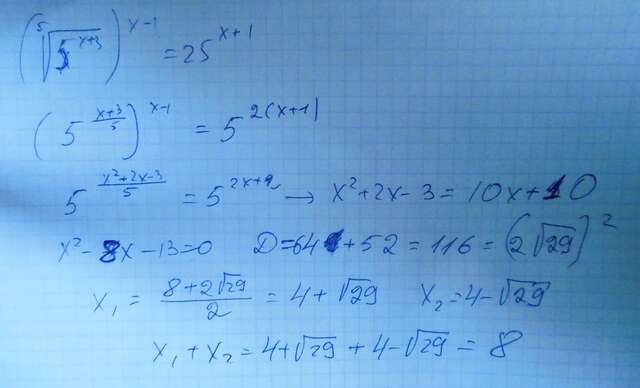 (⁵√(5^(x+3)))^(x-1) = 25^(x+1)
(5^((x+3)/5))^(x-1) = 5^(2(x+1))
5^((x²+2x-3)/5) = 5^(2x+2) → x²+2x-3 = 10x+10
x²-8x-13=0 D=64+52=116=(2√29)²
x₁ = (8+2√29)/2 = 4+√29 x₂=4-√29
x₁+x₂=4+√29+4-√29=8